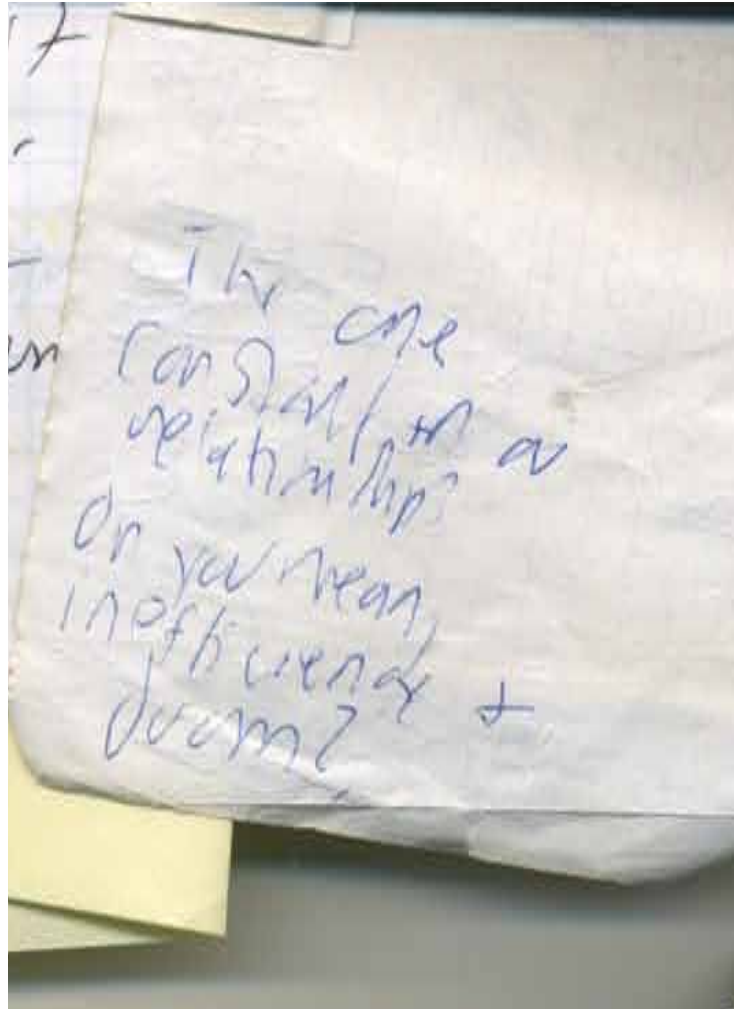 The one
constant in a
relationship?
Or you mean,
inefficiency +
doom?